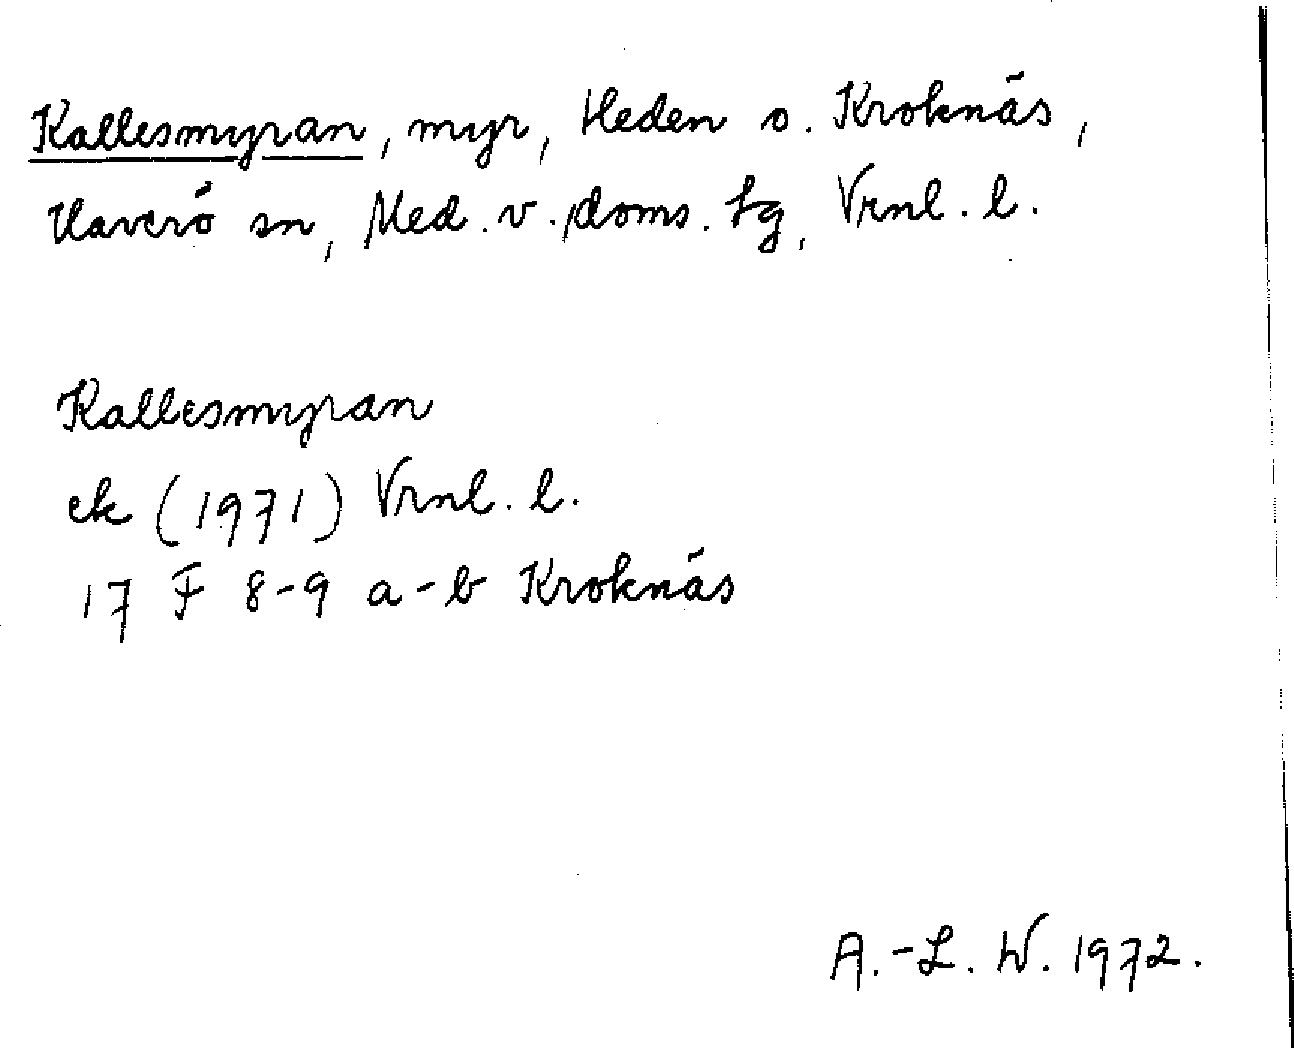 Kallesmyran, myr, Heden o. Kroknäs,
Haverö sn, Med. v. doms. tg, Vrnl. l.
Kallesmyran
ek (1971) Vrnl. l.
17 F 8-9 a-b Kroknäs
A.-L. W. 1972.